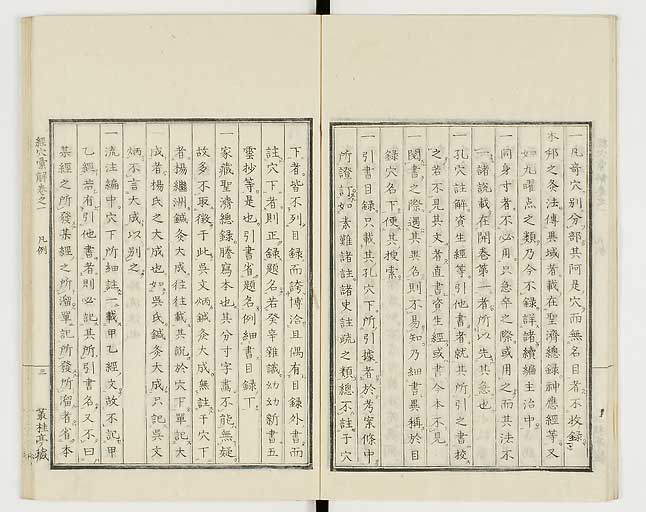 一凡奇穴別分部其阿是穴而無名目者不收錄
本邦之灸法傳異域者載在聖濟總錄神應經等又
如九曜點之類乃今不錄詳諸續編主治中
一同身寸者不必用只急卒之際或用之而其法不
一諸說載在開卷第一者所以先其急也
一孔穴註解資生經等引他書者就其所引之書校
之若不見其文者直書資生經或書今本不見
一閱書之際遇其異名則不易知乃細書異稱於目
錄穴名下便其搜索
一引書目錄只載其孔穴下所引據者於考案條中
所證訂如素難諸註諸史註疏之類總不註于穴
下者皆不列目錄而誇博洽且偶有目錄外書而
註穴下者則正錄題名若癸辛雜識幼幼新書五
雲抄等是也引書省題名例細書目錄下
一家藏聖濟總錄謄寫本也其分寸字畫不能無疑
故多不取徵于此吳文炳鍼灸大成無註于穴下
者楊繼洲鍼灸大成往往載其說於穴下單記大
成者楊氏之大成也如吳氏鍼灸大成只記吳文
炳不言大成以別之
一流注編中穴下所細註一載甲乙經文故不記甲
乙經若有引他書者則必記其所引書名又不曰
某經之所發某經之所溜單記所發所溜者省本
經穴彙解卷之一
凡例
三
叢桂亭藏